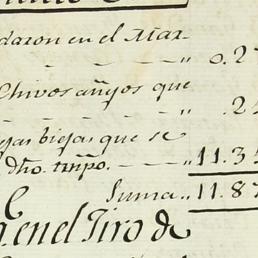 daron en el Mar-
0.2
Chivos añejos que
.2
ejas biejas que se
dho. tmpo. 11.3
Suma 11.87
en el Tiro de